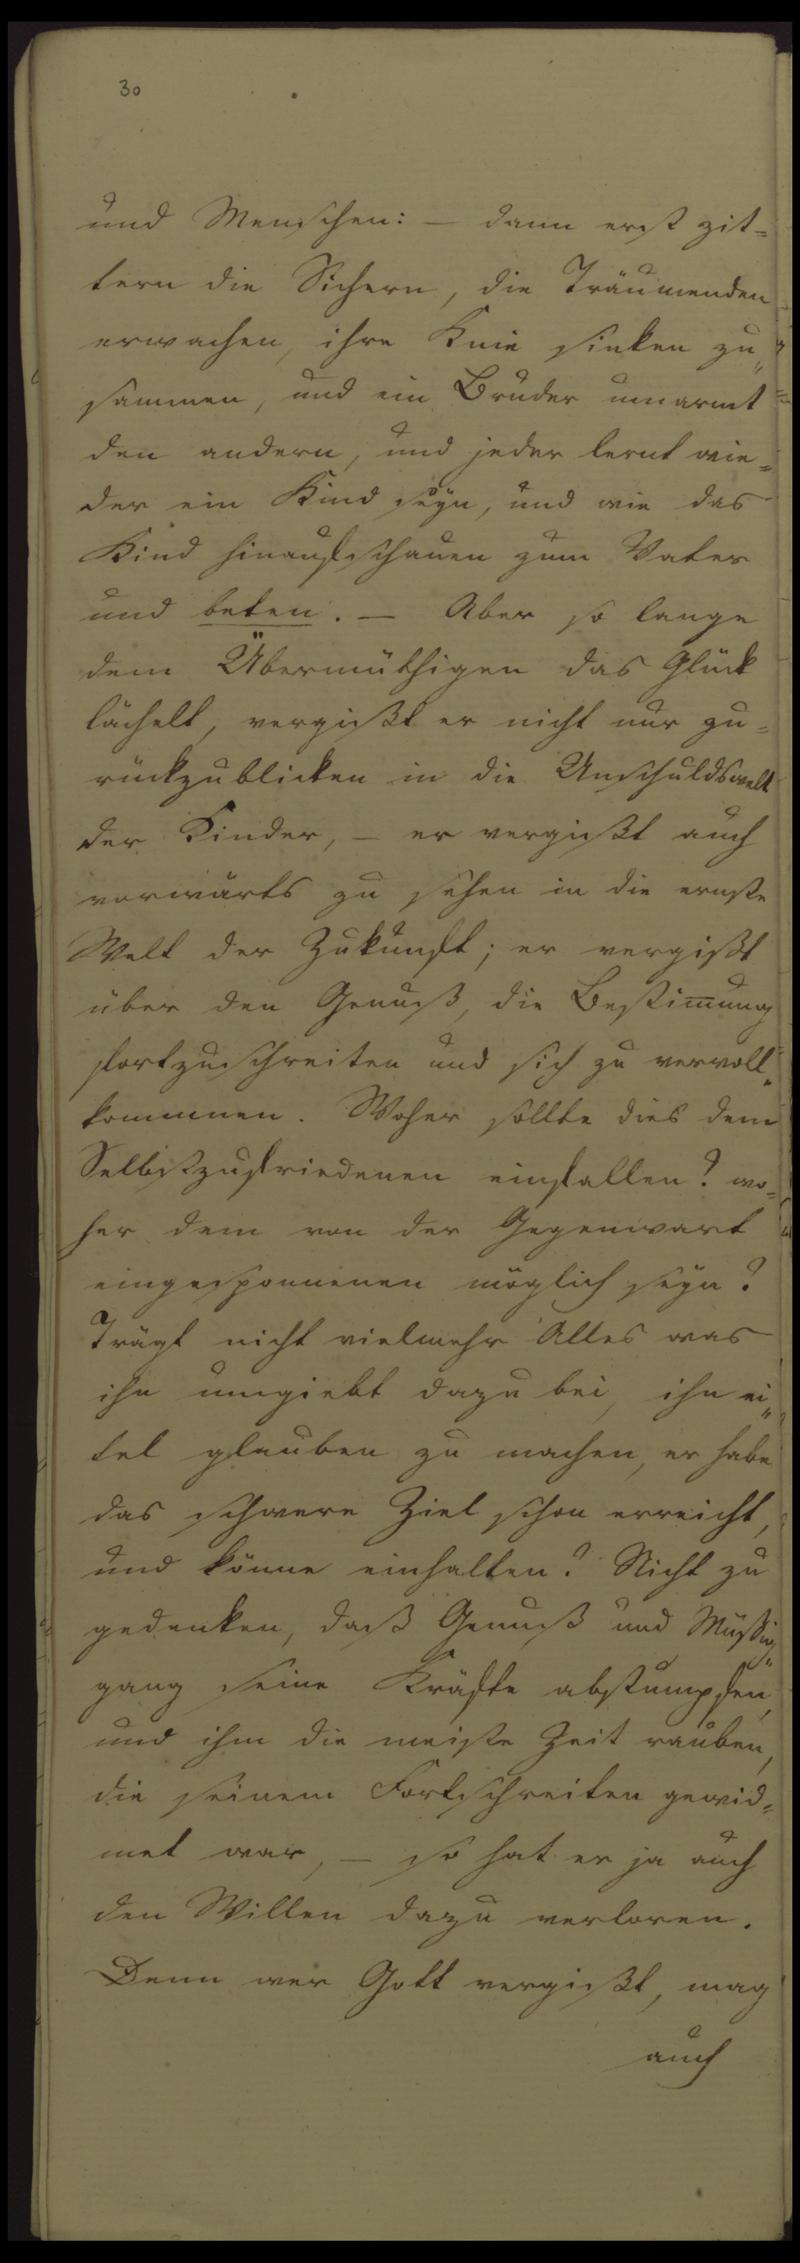 30
und Menschen: — dann erst zit=
tern die Sichern, die Träumenden
erwachen, ihre Knie sinken zu„
sammen, und ein Bruder umarmt
den andern, und jeder lernt wie=
der ein Kind seyn, und wie das
Kind hinaufschauen zum Vater
und beten. — Aber so lange
dem Übermüthigen das Glück
lächelt, vergißt er nicht nur zu=
rückzublicken in die Unschuldswelt
der Kinder, — er vergißt auch
vorwärts zu sehen in die ernste
Welt der Zukunft; er vergißt
über den Genuß, die Bestimung
fortzuschreiten und sich zu vervoll„
kommnen. Woher sollte dies dem
Selbstzufriedenen einfallen? wo=
her dem von der Gegenwart
eingesponnenen möglich seyn?
Trägt nicht vielmehr Alles was
ihn umgiebt dazu bei, ihn ei„
tel glauben zu machen, er habe
das schwere Ziel schon erreicht,
und könne einhalten? Nicht zu
gedenken, daß Genuß und Müßig„
gang seine Kräfte abstumpfen,
und ihm die meiste Zeit rauben,
die seinem Fortschreiten gewid=
met war, — so hat er ja auch
den Willen dazu verloren.
Denn wer Gott vergißt, mag
auch